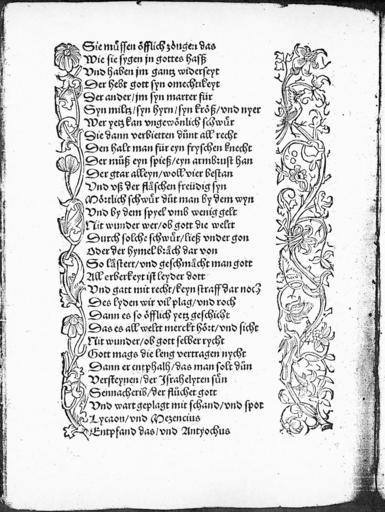 Sie müssen öfflich zöngen das
Wie sie sygen in gottes hasß
Vnd haben jm gantz widerseyt
Der hebt gott syn omechtikeyt
Der ander/jm syn marter für
Syn miltz/syn hyrn/syn kröß/vnd nyer
Wer yetz kan vngewönlich schwür
Die dann verbietten dünt all recht
Den halt man für eyn fryschen knecht
Der müß eyn spieß/eyn armbrust han
Der gtar alleyn/woll vier bestan
Vnd vß der fläschen freüdig syn
Mörtlich schwür düt man by dem wyn
Vnd by dem spyel vmb wenig gelt
Nit wunder wer/ob gott die welt
Durch solche schwür/ließ vnder gon
Oder der hymel bräch dar von
So lästert/vnd geschmächt man gott
All erberkeyt ist leyder dott
Vnd gatt mit recht/keyn straff dar noch
Des lyden wir vil plag/vnd roch
Dann es so öfflich yetz geschicht
Das es all welt merckt hört/vnd sicht
Nit wunder/ob gott selber rycht
Gott mags die leng vertragen nycht
Dann er entpfalh/das man solt dün
Versteynen/der Israhelyten sün
Sennacherib/der flüchet gott
Vnd wart geplagt mit schand/vnd spot
Lycaon/vnd Mezencius
Entpfand das/vnd Antyochus